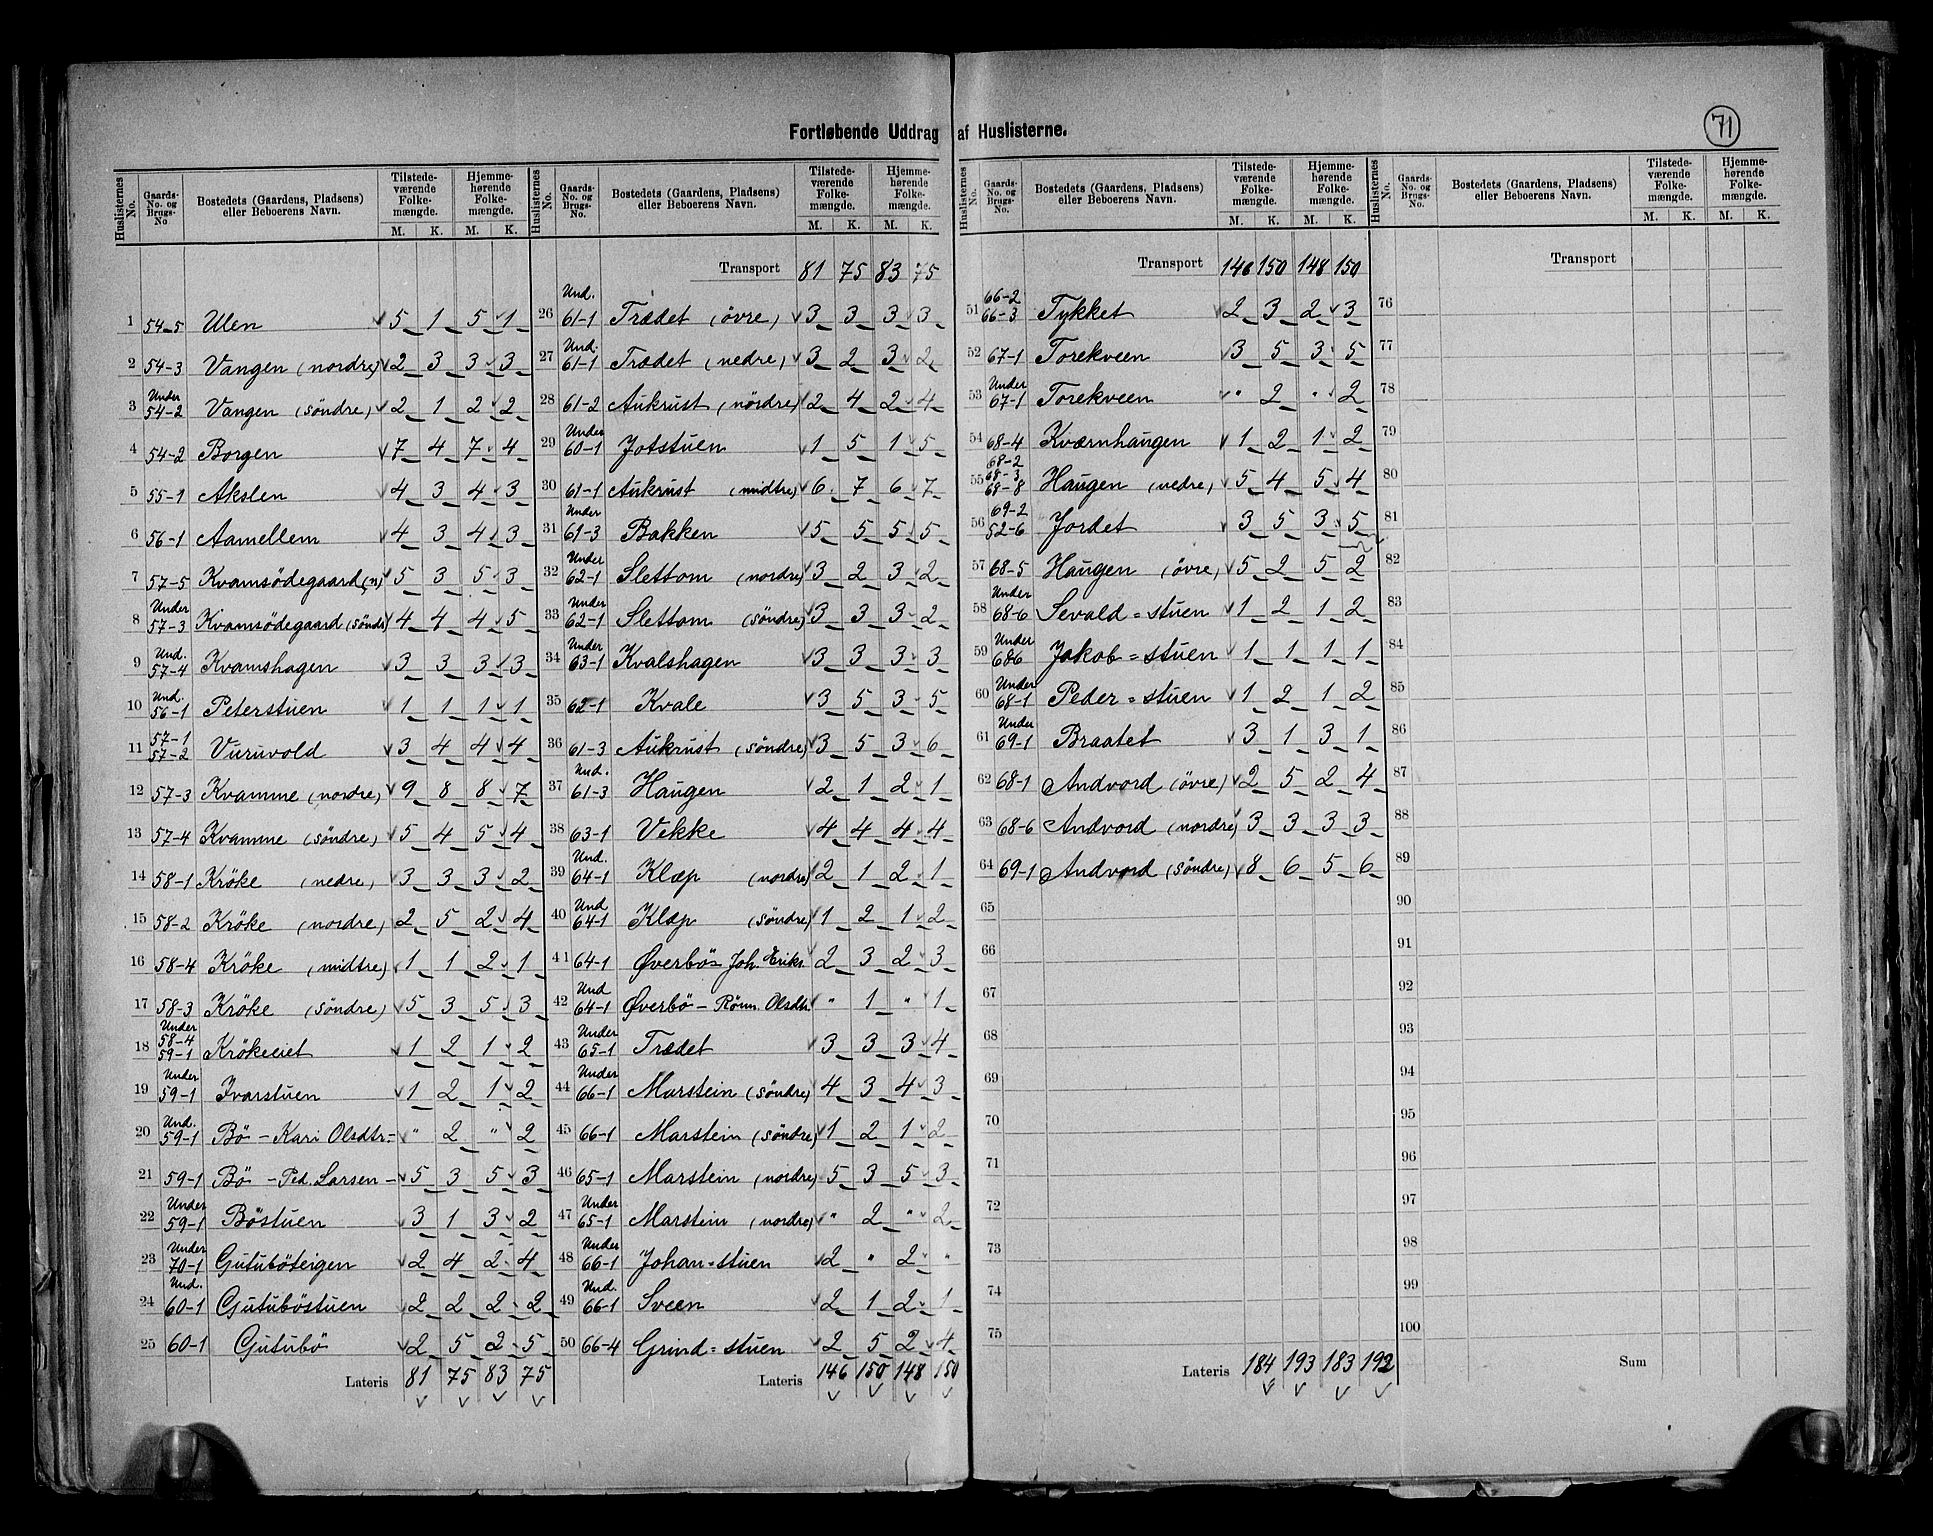 71
Fortløbende Uddrag af Huslisterne.
Huslisternes No. | Gaards-No. og Brugs-No | Bostedets (Gaardens, Pladsens) eller Beboerens Navn. | Tilstedeværende Folkemængde. M. K. | Hjemmehørende Folkemængde. M. K.
1 54-5 Ulen 5 1 5 1
2 54-3 Vangen (nordre) 2 3 3 3
3 Under 54-2 Vangen (söndre) 2 1 2 2
4 54-2 Borgen 7 4 7 4
5 55-1 Akslen 4 3 4 3
6 56-1 Aamellem 4 3 4 3
7 57-5 Kvamsödegaard (n) 5 3 5 3
8 Under 57-3 Kvamsödegaard (söndr) 4 4 4 5
9 Und. 57-4 Kvamshagen 3 3 3 3
10 Und. 56-1 Peterstuen 1 1 1 1
11 57-1 57-2 Vuruvold 3 4 4 4
12 57-3 Kvamme (nordre) 9 8 8 7
13 57-4 Kvamme (söndre) 5 4 5 4
14 58-1 Kröke (nedre) 3 3 3 2
15 58-2 Kröke (nordre) 2 5 2 4
16 58-4 Kröke (midtre) 1 1 2 1
17 58-3 Kröke (söndre) 5 3 5 3
18 Under 58-4 59-1 Krökeeiet 1 2 1 2
19 Under 59-1 Ivarstuen 1 2 1 2
20 Und. 59-1 Bö - Kari Olsdtr - " 2 " 2
21 59-1 Bö - Ped. Larsen - 5 3 5 3
22 Under 59-1 Böstuen 3 1 3 2
23 Under 70-1 Gutuböteigen 2 4 2 4
24 Und. 60-1 Gutuböstuen 2 2 2 2
25 60-1 Gutubö 2 5 2 5
Lateris 81 75 83 75
Huslisternes No. | Gaards-No. og Brugs-No. | Bostedets (Gaardens, Pladsens) eller Beboerens Navn. | Tilstedeværende Folkemængde. M. K. | Hjemmehørende Folkemængde. M. K.
Transport 81 75 83 75
26 Und. 61-1 Trædet (övre) 3 3 3 3
27 Und. 61-1 Trædet (nedre) 3 2 3 2
28 61-2 Aukrust (nördre) 2 4 2 4
29 Under 60-1 Jotstuen 1 5 1 5
30 61-1 Aukrust (midtre) 6 7 6 7
31 Under 61-3 Bakken 5 5 5 5
32 Under 62-1 Slettom (nordre) 3 2 3 2
33 Under 62-1 Slettom (söndre) 3 3 3 2
34 Under 63-1 Kvalshagen 3 3 3 3
35 62-1 Kvale 3 5 3 5
36 61-3 Aukrust (söndre) 3 5 3 6
37 Und. 61-3 Haugen 2 1 2 1
38 63-1 Vekke 4 4 4 4
39 Und. 64-1 Klæp (nordre) 2 1 2 1
40 Und 64-1 Klæp (söndre) 1 2 1 2
41 64-1 Øverbö - Joh. Eriks. 2 3 2 3
42 Und 64-1 Øverbö - Rönn. Olsdtr. " 1 " 1
43 Under 65-1 Trædet 3 3 3 4
44 Under 66-1 Marstein (söndre) 4 3 4 3
45 66-1 Marstein (söndre) 1 2 1 2
46 65-1 Marstein (nordre) 5 3 5 3
47 Under 65-1 Marstein (nordre) " 2 " 2
48 Under 66-1 Johan=stuen 2 " 2 "
49 Und. 66-1 Sveen 2 1 2 1
50 66-4 Grind=stuen 2 5 2 4
Lateris 146 150 148 150
Huslisternes No. | Gaards-No. og Brugs-No. | Bostedets (Gaardens, Pladsens) eller Beboerens Navn. | Tilstedeværende Folkemængde. M. K. | Hjemmehørende Folkemængde. M. K.
Transport 146 150 148 150
51 66-2 66-3 Tykket 2 3 2 3
52 67-1 Torekveen 3 5 3 5
53 Under 67-1 Torekveen " 2 " 2
54 68-4 Kværnhaugen 1 2 1 2
55 68-2 68-3 68-8 Haugen (nedre) 5 4 5 4
56 69-2 52-6 Jordet 3 5 3 5
57 68-5 Haugen (övre) 5 2 5 2
58 Under 68-6 Sevald=stuen 1 2 1 2
59 Under 686 Jakob=stuen 1 1 1 1
60 Under 68-1 Peder=stuen 1 2 1 2
61 Under 69-1 Braatet 3 1 3 1
62 68-1 Andvord (övre) 2 5 2 4
63 68-6 Andvord (nordre) 3 3 3 3
64 69-1 Andvord (söndre) 8 6 5 6
65
66
67
68
69
70
71
72
73
74
75
Lateris 184 193 183 192
Huslisternes No. | Gaards-No. og Brugs-No. | Bostedets (Gaardens, Pladsens) eller Beboerens Navn. | Tilstedeværende Folkemængde. M. K. | Hjemmehørende Folkemængde. M. K.
Transport
76
77
78
79
80
81
82
83
84
85
86
87
88
89
90
91
92
92
93
94
95
96
97
98
99
100
Sum